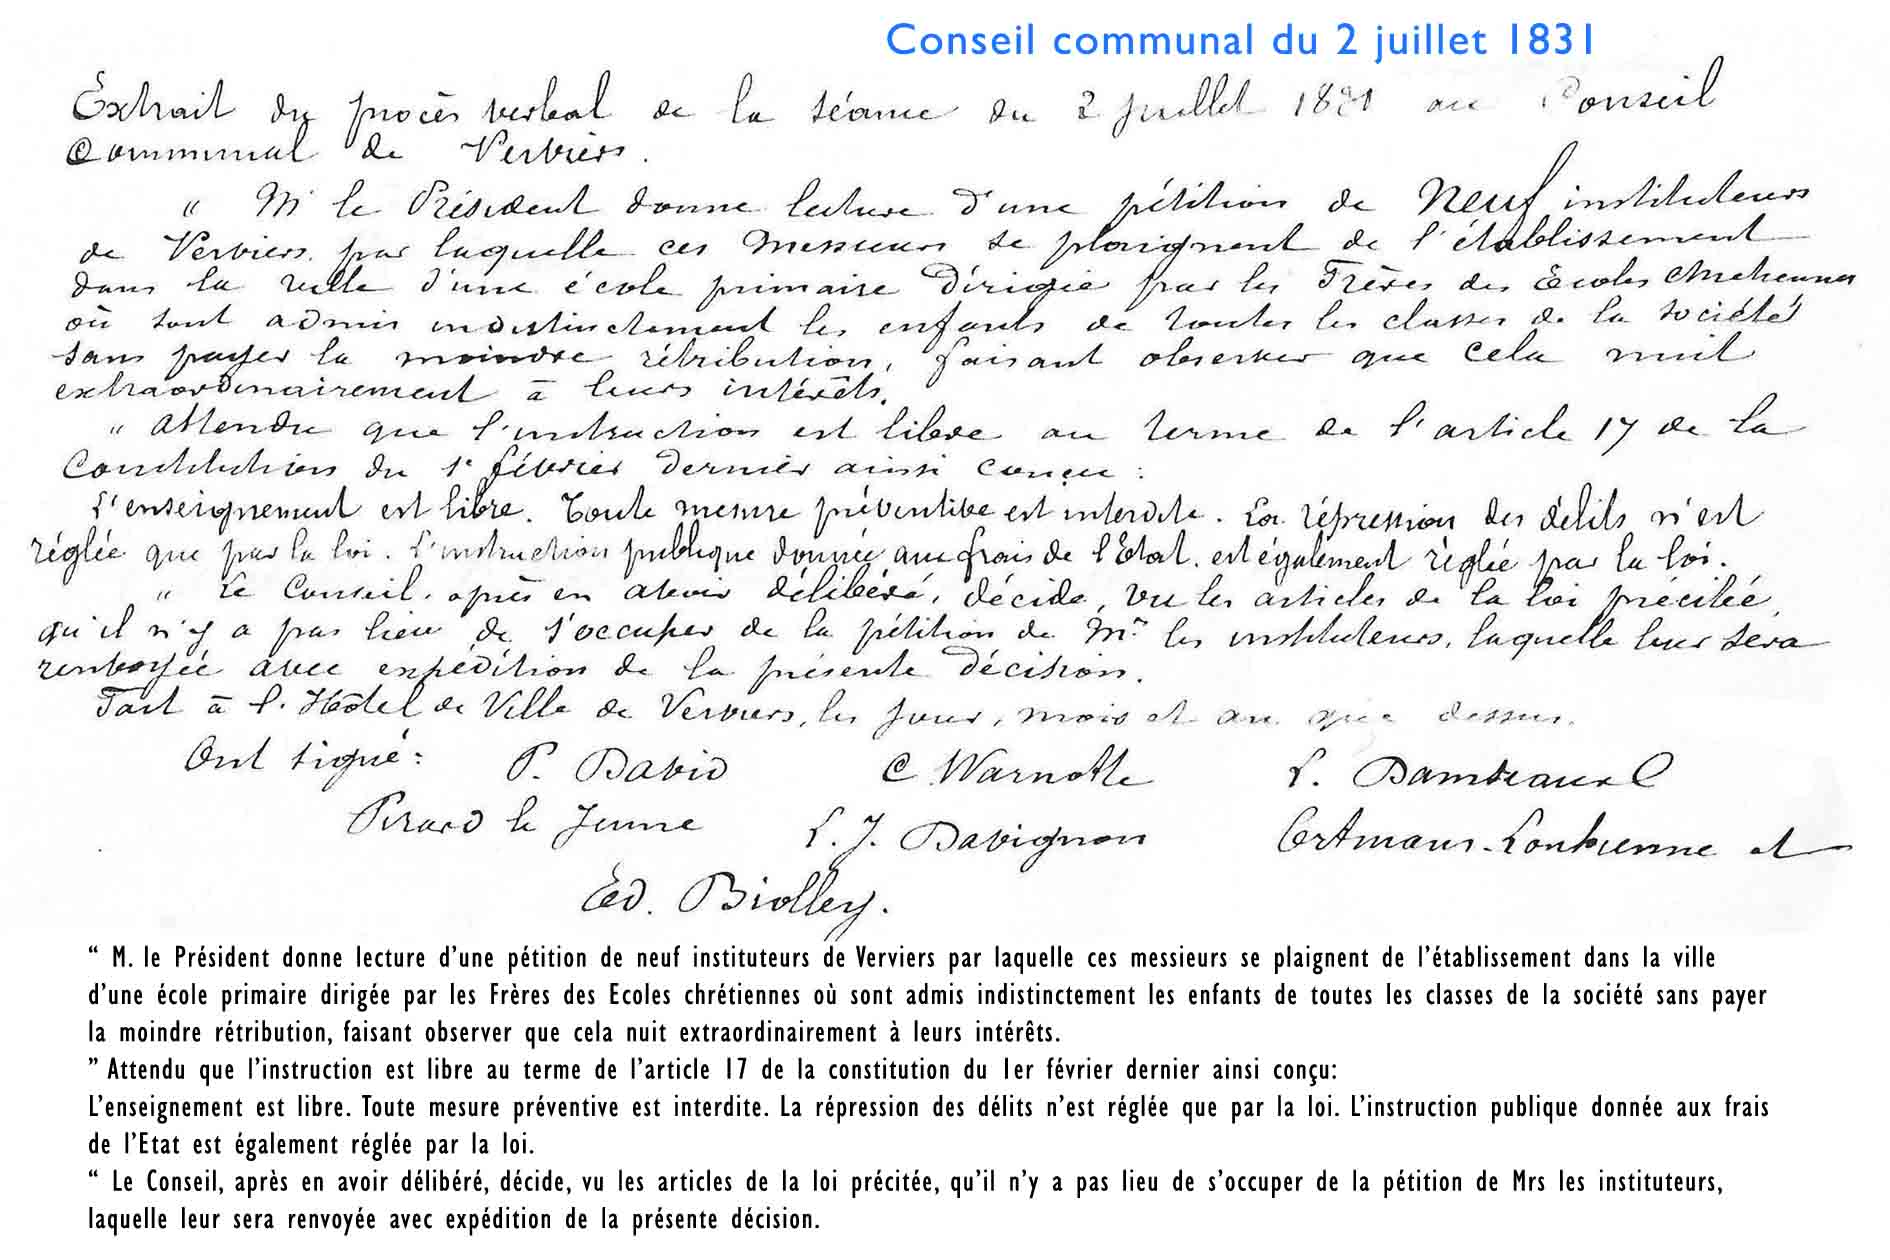 Conseil communal du 2 juillet 1831
Extrait du procès verbal de la séance du 2 juillet 1831 au Conseil
Communal de Verviers.
" Mr le Président donne lecture d'une pétition de Neuf instituteurs
de Verviers par laquelle ces Messieurs se plaignent de l'établissement
dans la ville d'une école primaire Dirigée par les Frères des Ecoles chrétiennes
où sont admis indistinctement les enfants de toutes les classes de la société
sans payer la moindre rétribution, faisant observer que cela nuit
extraordinairement à leurs intérêts.
" Attendu que l'instruction est libre au terme de l'article 17 de la
Constitution du 1er février dernier ainsi conçu :
L'enseignement est libre. Toute mesure préventive est interdite. La répression des délits n'est
réglée que par la loi. L'instruction publique donnée aux frais de l'Etat. est également réglée par la loi.
" Le Conseil, après en avoir délibéré, décide, vu les articles de la loi précitée,
qu'il n'y a pas lieu de s'occuper de la pétition de Mrs les instituteurs, laquelle leur sera
renvoyée avec expédition de la présente décision.
Fait à l'Hôtel de Ville de Verviers, les jour, mois et an que dessus.
Ont signé : P. David C Warnotte L. Dambraux
Pirard le Jeune L. J. Davignon et
Ed. Biolley.
“ M. le Président donne lecture d’une pétition de neuf instituteurs de Verviers par laquelle ces messieurs se plaignent de l’établissement dans la ville
d’une école primaire dirigée par les Frères des Ecoles chrétiennes où sont admis indistinctement les enfants de toutes les classes de la société sans payer
la moindre rétribution, faisant observer que cela nuit extraordinairement à leurs intérêts.
” Attendu que l’instruction est libre au terme de l’article 17 de la constitution du 1er février dernier ainsi conçu:
L’enseignement est libre. Toute mesure préventive est interdite. La répression des délits n’est réglée que par la loi. L’instruction publique donnée aux frais
de l’Etat est également réglée par la loi.
“ Le Conseil, après en avoir délibéré, décide, vu les articles de la loi précitée, qu’il n’y a pas lieu de s’occuper de la pétition de Mrs les instituteurs,
laquelle leur sera renvoyée avec expédition de la présente décision.